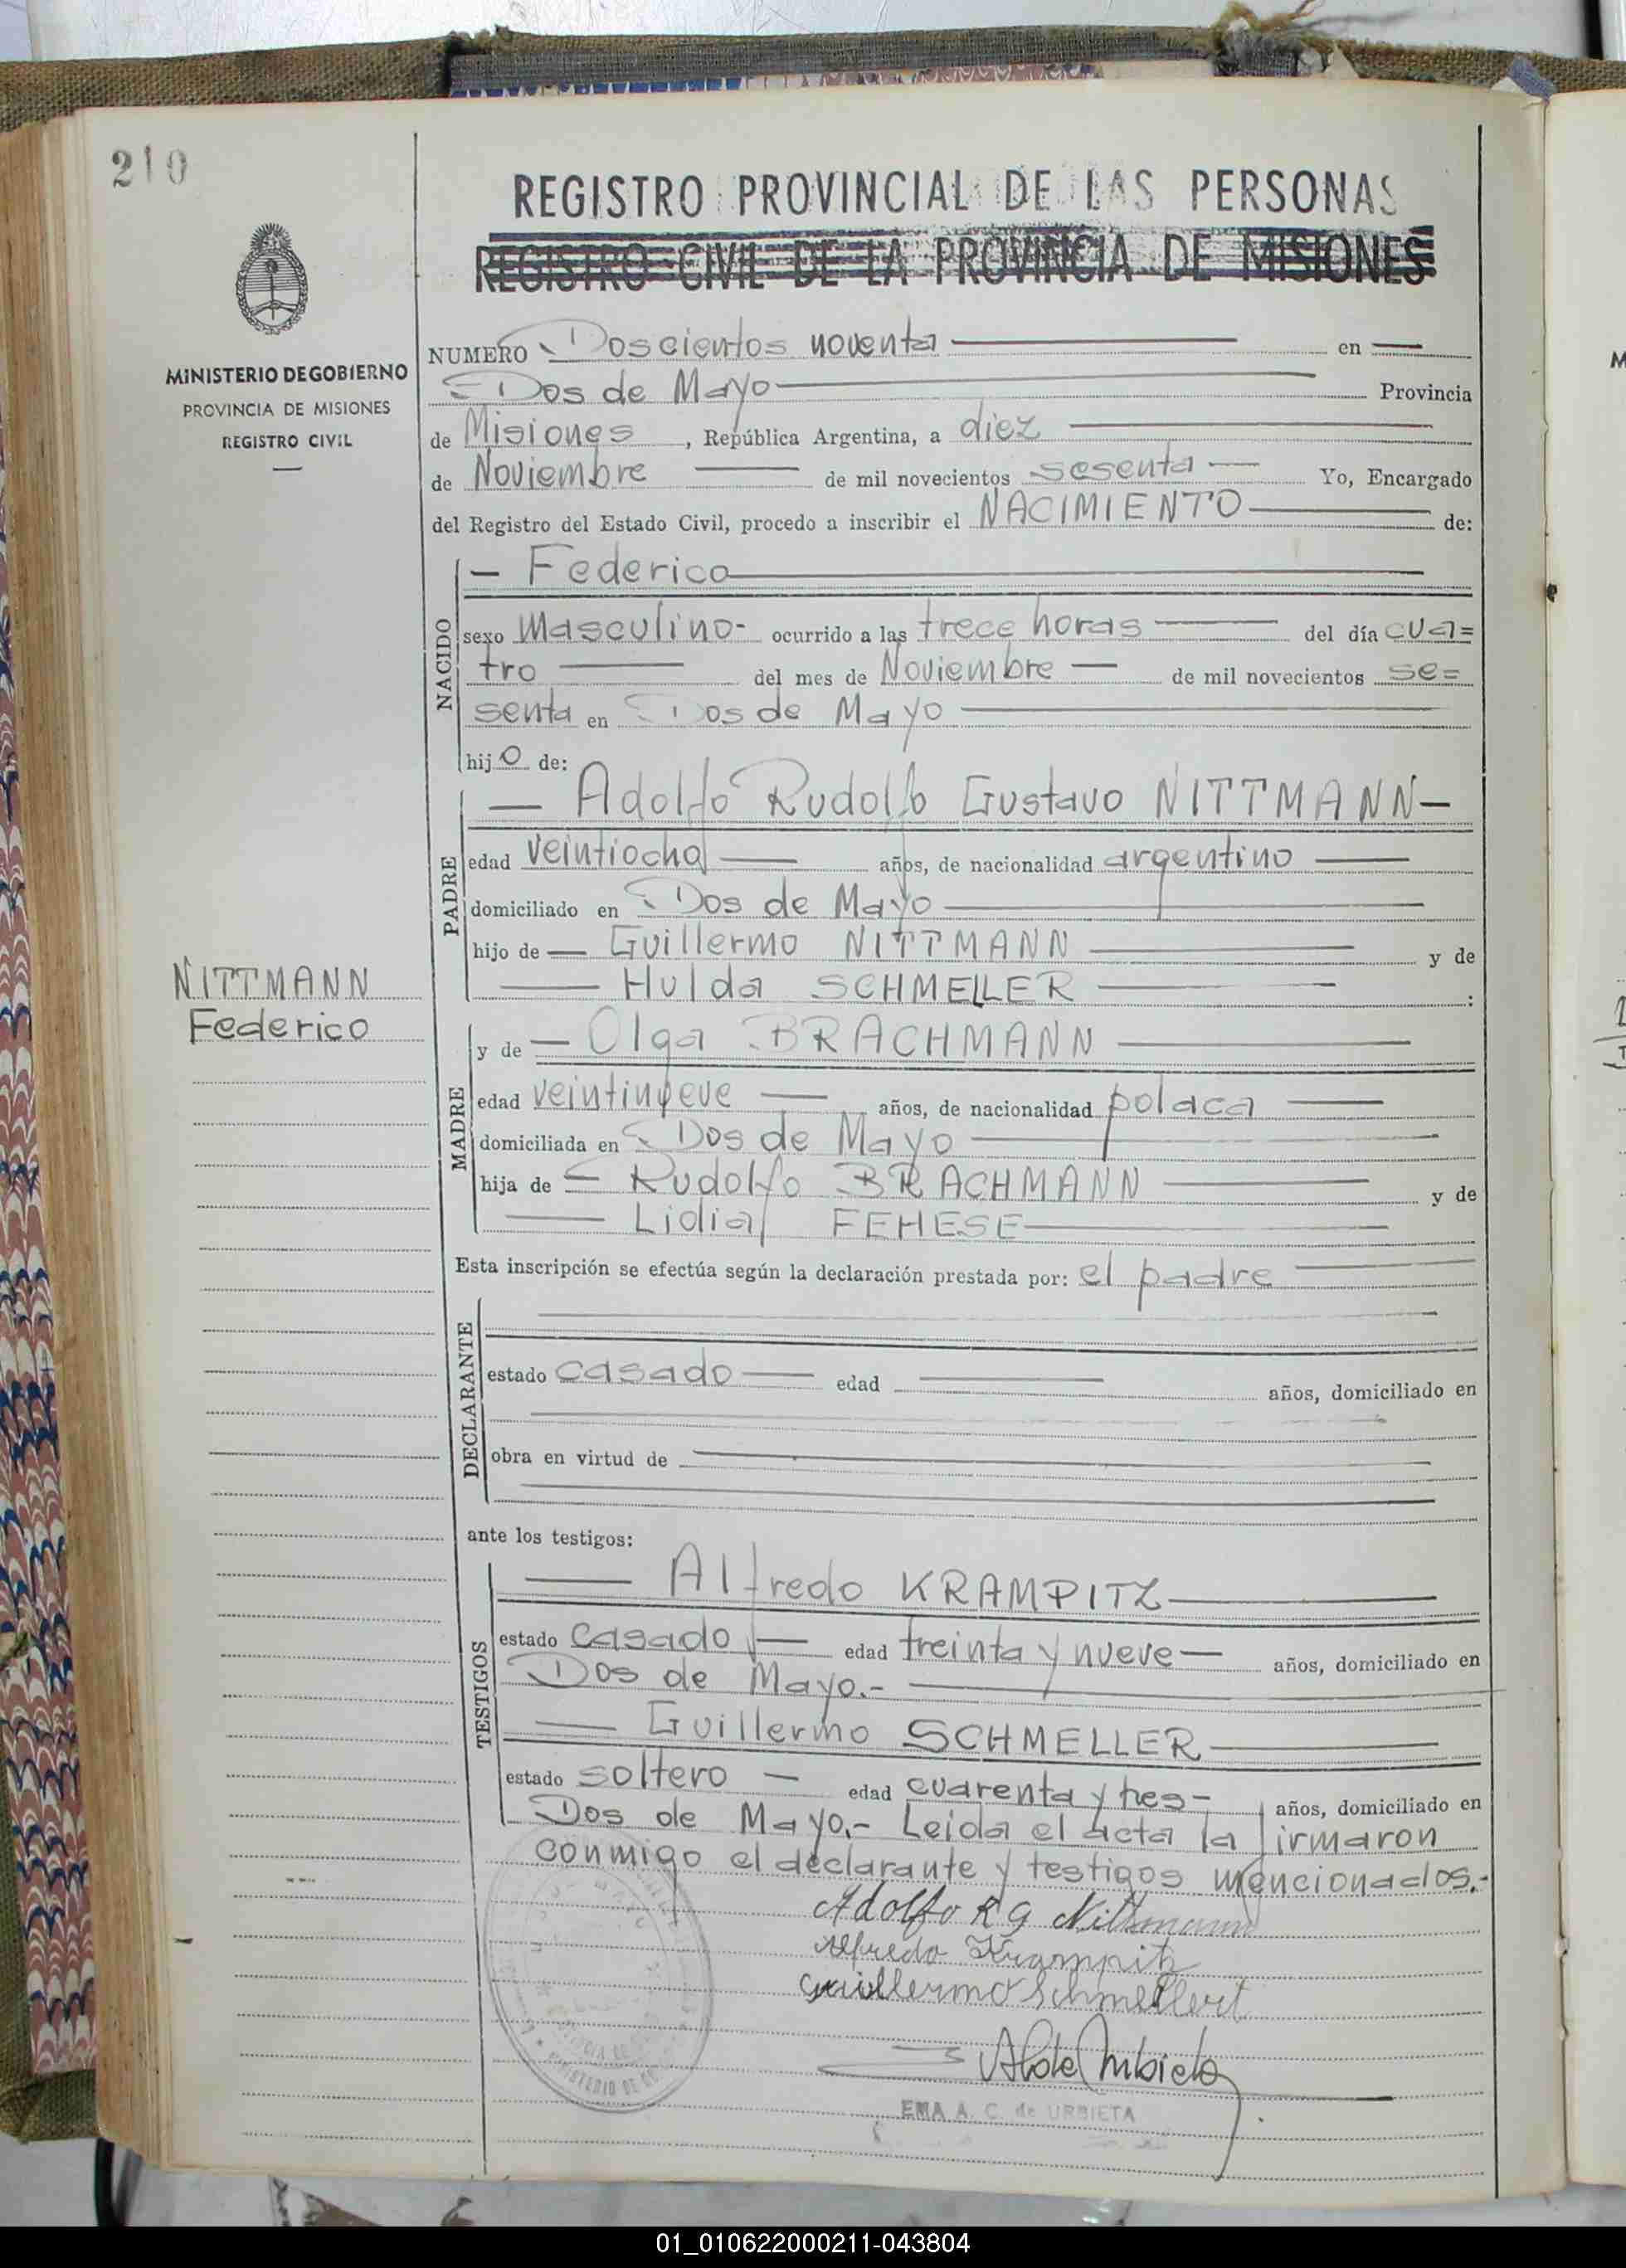 210
REGISTRO PROVINCIAL DE LAS PERSONAS
REGISTRO CIVIL DE LA PROVINCIA DE MISIONES
MINISTERIO DE GOBIERNO
PROVINCIA DE MISIONES
REGISTRO CIVIL
NUMERO Doscientos noventa en
Dos de Mayo Provincia
de Misiones, República Argentina, a diez
de Noviembre de mil novecientos sesenta Yo, Encargado
del Registro del Estado Civil, procedo a inscribir el NACIMIENTO de:
NACIDO
- Federico
sexo Masculino- ocurrido a las trece horas del día cua=
tro del mes de Noviembre de mil novecientos se=
senta en Dos de Mayo
hijo de:
PADRE
Adolfo Rudolfo Gustavo NITTMANN-
edad veintiocho años, de nacionalidad argentino
domiciliado en Dos de Mayo
hijo de Guillermo NITTMANN y de
Hulda SCHMELLER:
NITTMANN
Federico
MADRE
y de Olga BRACHMANN
edad veintinueve años, de nacionalidad polaca
domiciliada en Dos de Mayo
hija de Rudolfo BRACHMANN y de
Lidia FEHESE
Esta inscripción se efectúa según la declaración prestada por: el padre
DECLARANTE
estado casado edad años, domiciliado en
obra en virtud de
ante los testigos:
TESTIGOS
Alfredo KRAMPITZ
estado casado edad treinta y nueve años, domiciliado en
Dos de Mayo.-
Guillermo SCHMELLER
estado soltero edad cuarenta y tres- años, domiciliado en
Dos de Mayo.- Leida el acta la firmaron
conmigo el declarante y testigos mencionados.-
Adolfo R G Nittmann
Alfredo Krampitz
Guillermo Schmellert
EMA A. C. de URBIETA
MINISTERIO DE
01_010622000211-043804